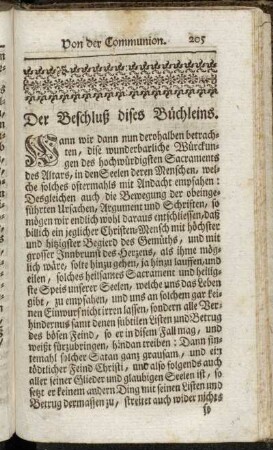 Von der Communion. 205
Der Beschluß dises Büchleins.
Wann wir dann nun derohalben betrach-
ten, dise wunderbarliche Würckun-
gen des hochwürdigsten Sacraments
des Altars, in den Seelen deren Menschen, wel-
che solches oftermahls mit Andacht empfahen:
Desgleichen auch die Bewegung der obeinge-
führten Ursachen, Argument und Schriften, so
mögen wir endlich wohl daraus entschliessen, daß
billich ein jeglicher Christen-Mensch mit höchster
und hitzigster Begierd des Gemüths, und mit
grosser Innbrunst des Herzens, als ihme mög-
lich wäre, solte hinzu gehen, ja hinzu lauffen, und
eilen, solches heilsames Sacrament und heilig-
ste Speis unserer Seelen, welche uns das Leben
gibt, zu empfahen, und uns an solchem gar kei-
nen Einwurf nicht irren lassen, sondern alle Ver-
hindernus samt denen subtilen Listen und Betrug
des bösen Feind, so er in disem Fall mag, und
weißt fürzubringen, hindan treiben: Dann sin-
temahl solcher Satan ganz grausam, und ein
tödtlicher Feind Christi, und also folgends auch
aller seiner Glieder und glaubigen Seelen ist, so
setzt er keinem andern Ding mit seinen Listen und
Betrug dermassen zu, streitet auch wider nichts
so